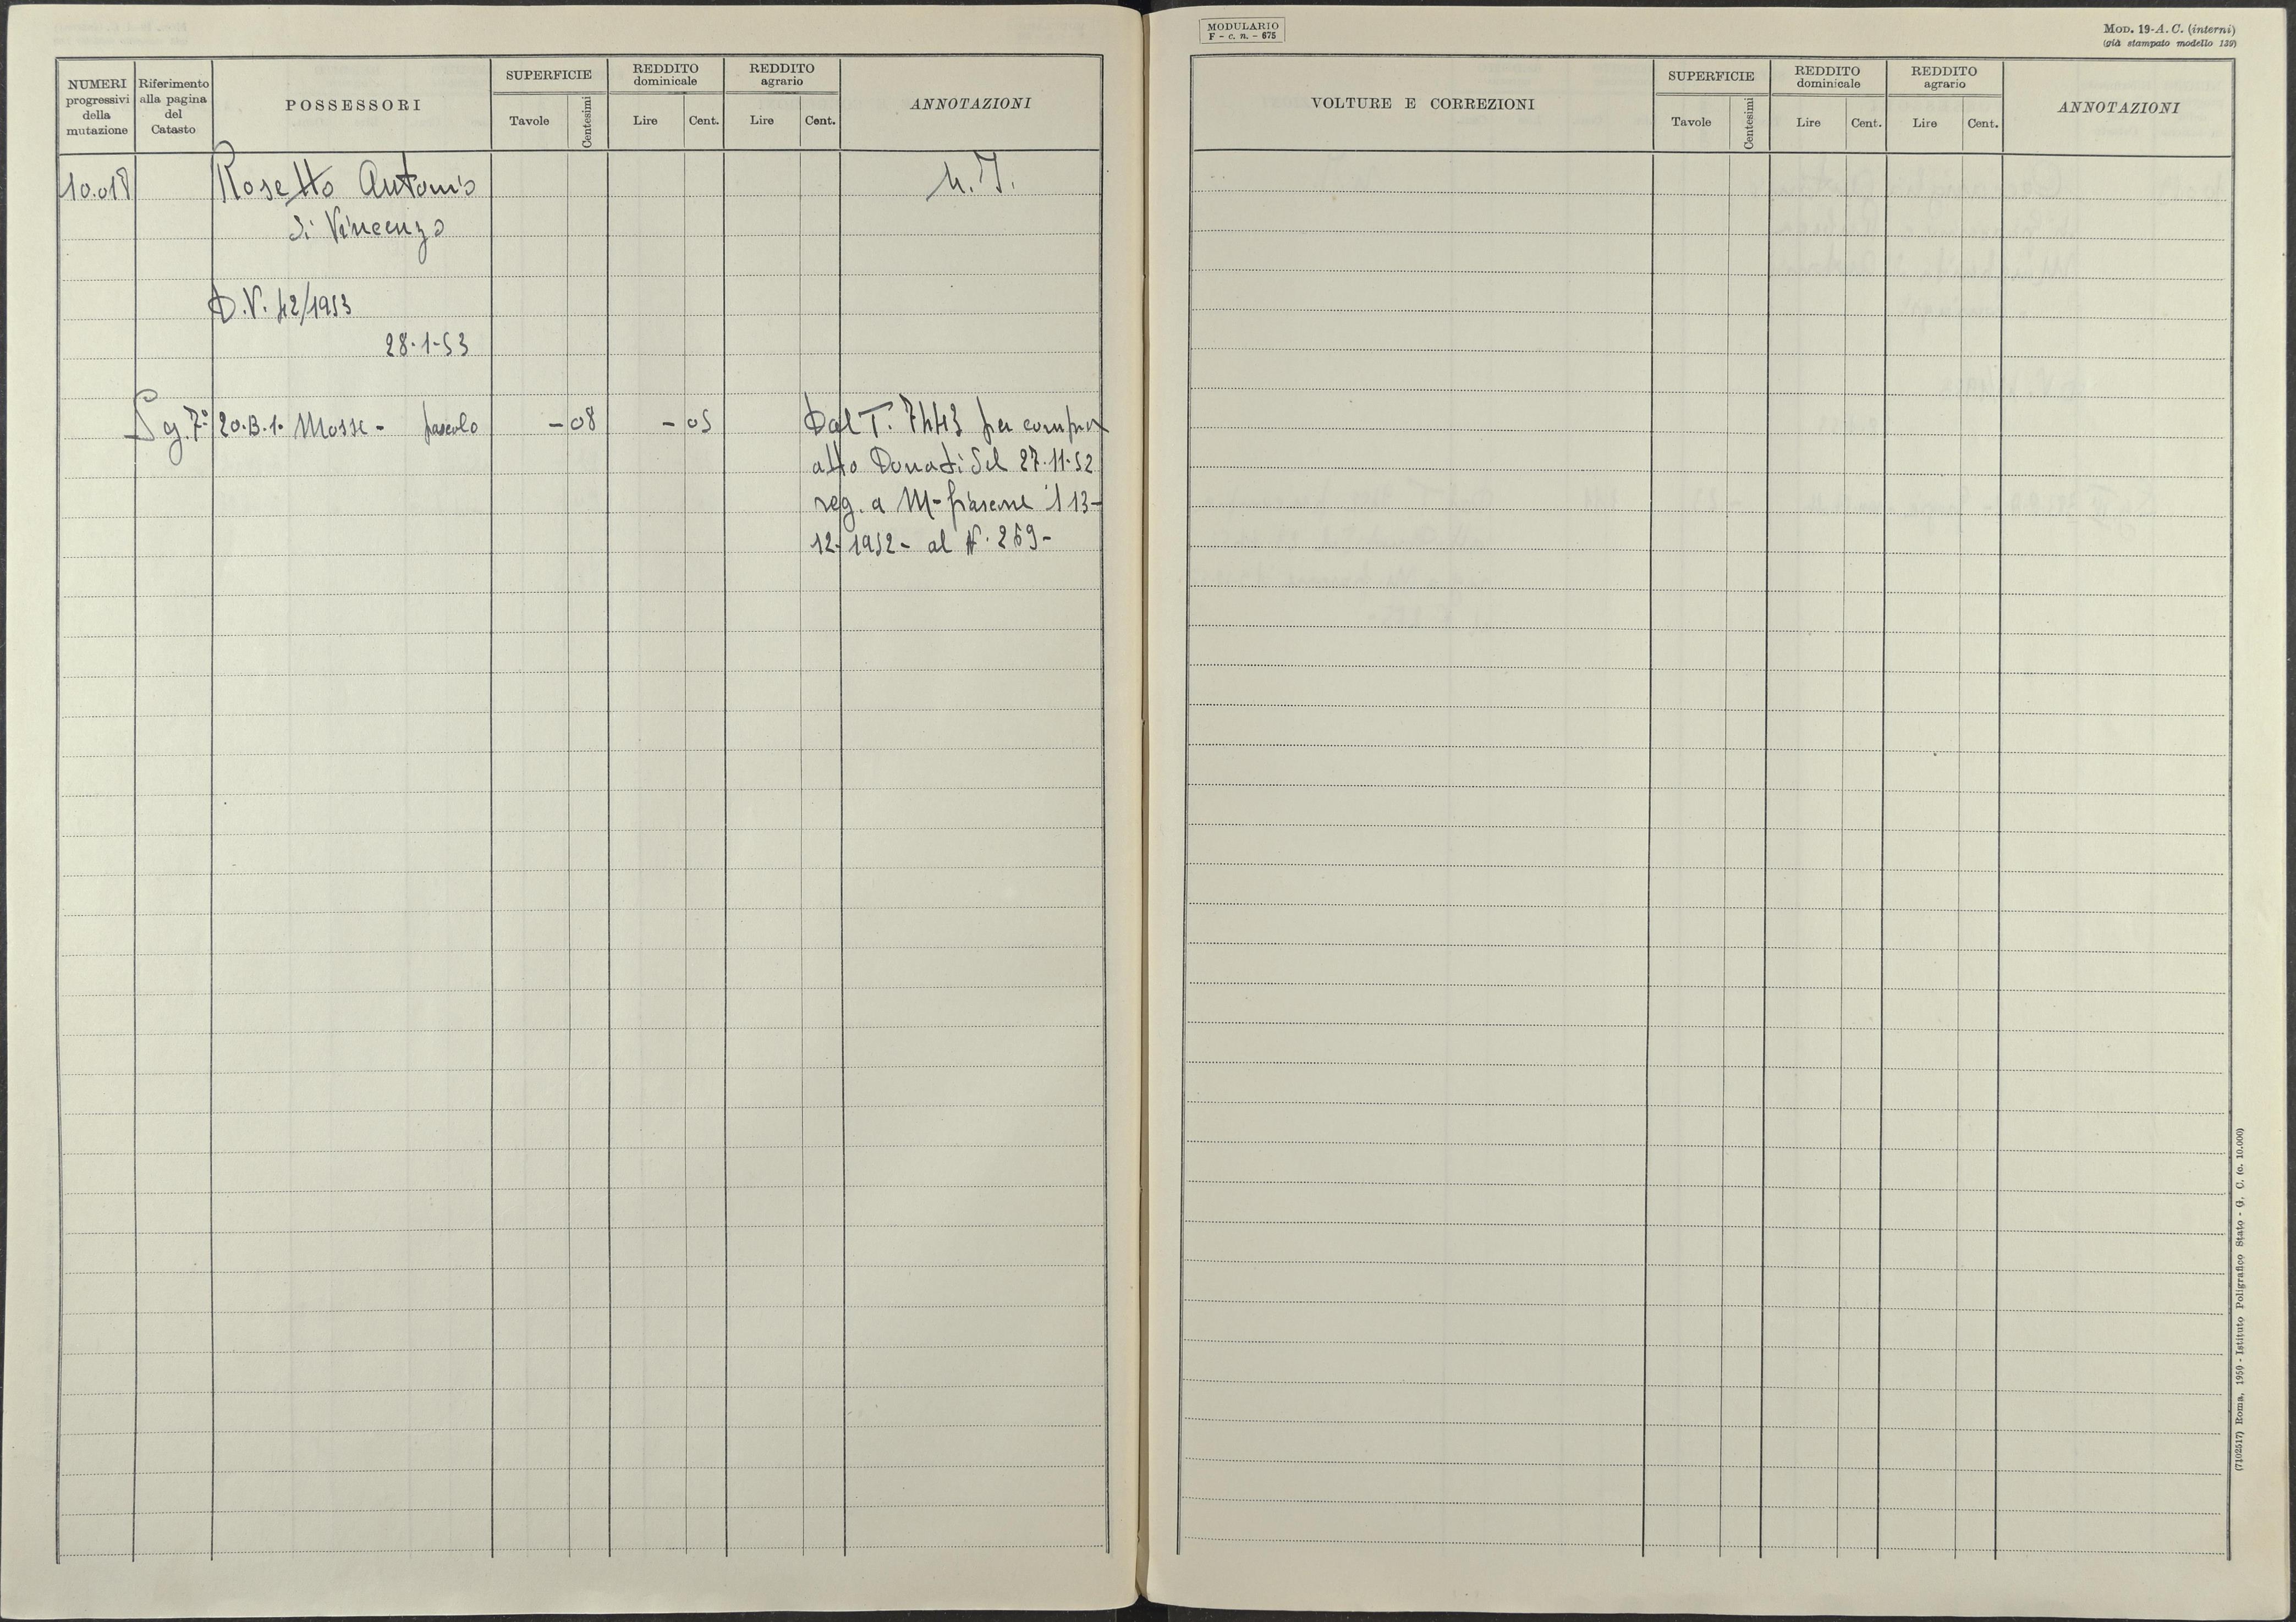 NUMERI progressivi della mutazione
Riferimento alla pagina del Catasto
POSSESSORI
SUPERFICIE
Tavole
Centesimi
REDDITO dominicale
Lire
Cent.
REDDITO agrario
Lire
Cent.
ANNOTAZIONI
10.018
Rosetto Antonio
di Vincenzo
D.V. 42/1953
28-1-53
Sez. 7ª 20.B.1. Mosse - pascolo - 08 - 05
Dal T. 7443 per compra
atto Donati del 27-11-52
reg. a M-fiascone il 13-
12-1952- al N. 269-
MODULARIO
F - c. n. - 675
MOD. 19-A. C. (interni)
(già stampato modello 139)
VOLTURE E CORREZIONI
SUPERFICIE
Tavole
Centesimi
REDDITO dominicale
Lire
Cent.
REDDITO agrario
Lire
Cent.
ANNOTAZIONI
(7102517) Roma, 1950 - Istituto Poligrafico Stato - G. C. (c. 10.000)